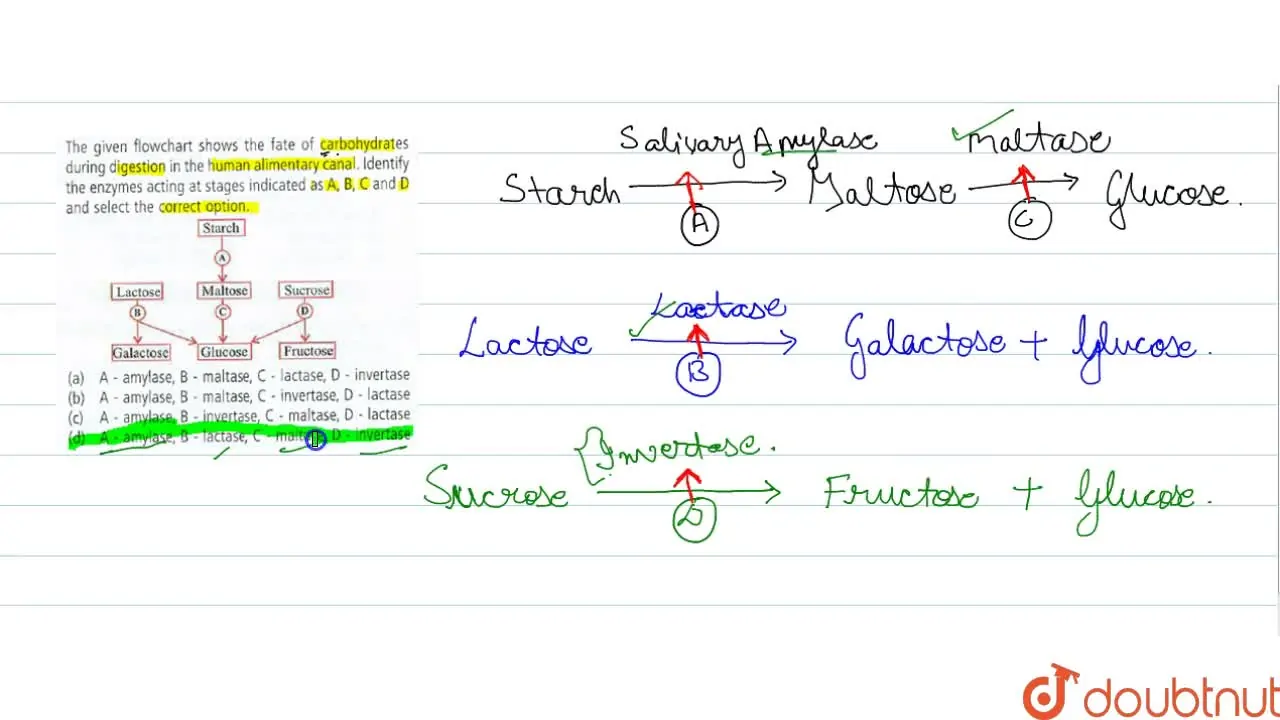 The given flowchart shows the fate of carbohydrates
during digestion in the human alimentary canal. Identify
the enzymes acting at stages indicated as A, B, C and D
and select the correct option.
Starch
A
Lactose Maltose Sucrose
B C D
Galactose Glucose Fructose
(a) A - amylase, B - maltase, C - lactase, D - invertase
(b) A - amylase, B - maltase, C - invertase, D - lactase
(c) A - amylase, B - invertase, C - maltase, D - lactase
(d) A - amylase, B - lactase, C - maltase, D - invertase
Salivary Amylase Maltase
Starch Maltose Glucose.
A C
Lactase
Lactose Galactose + Glucose.
B
Invertase.
Sucrose Fructose + Glucose.
D
doubtnut